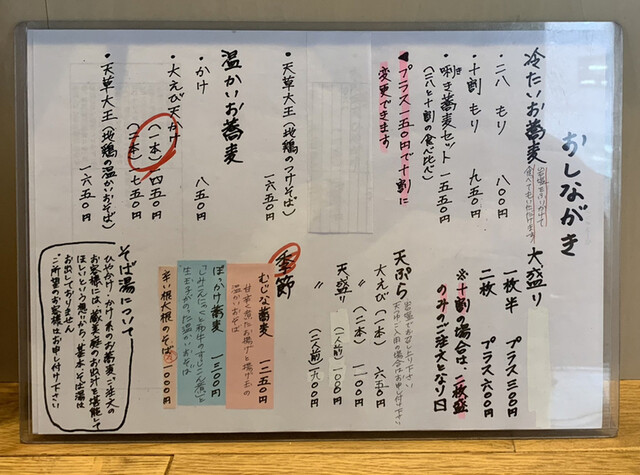 おしながき
冷たいお蕎麦
岩塩をふりかけて
食べてもいただけます
・二八 もり 八〇〇円
・十割 もり 九五〇円
・唎き蕎麦セット 一五五〇円
(二八と十割の食べ比べ)
プラス一五〇円で十割に
変更できます
・天草大王(地鶏のつけそば) 一六五〇円
温かいお蕎麦
・かけ 八五〇円
・大えび天かけ
(一本) 一四五〇円
(二本) 一七五〇円
・天草大王(地鶏の温かいおそば) 一六五〇円
大盛り
一枚半 プラス三〇〇円
二枚 プラス六〇〇円
※十割の場合は、二枚盛
のみのご注文となり〼
天ぷら
大えび(一本) 六五〇円
〃 (二本) 一一〇〇円
天盛り (一人前) 一一〇〇円
〃 (二人前) 一八〇〇円
季節
むじな蕎麦 一二五〇円
甘辛く煮たお揚げと揚げ玉の
温かいおそば
ぼっかけ蕎麦 一三〇〇円
「じみこんにゃくと和牛のすじこん煮」と
生玉子がのった温かいおそば
辛い根々根のそば 一一〇〇円
そば湯について
ひやかけ・かけ系のお蕎麦ご注文の
お客様には、蔵美庭のお出汁を堪能して
ほしいという思いから、基本、そば湯は
お出ししておりません
ご所望のお客様はお申し付け下さい